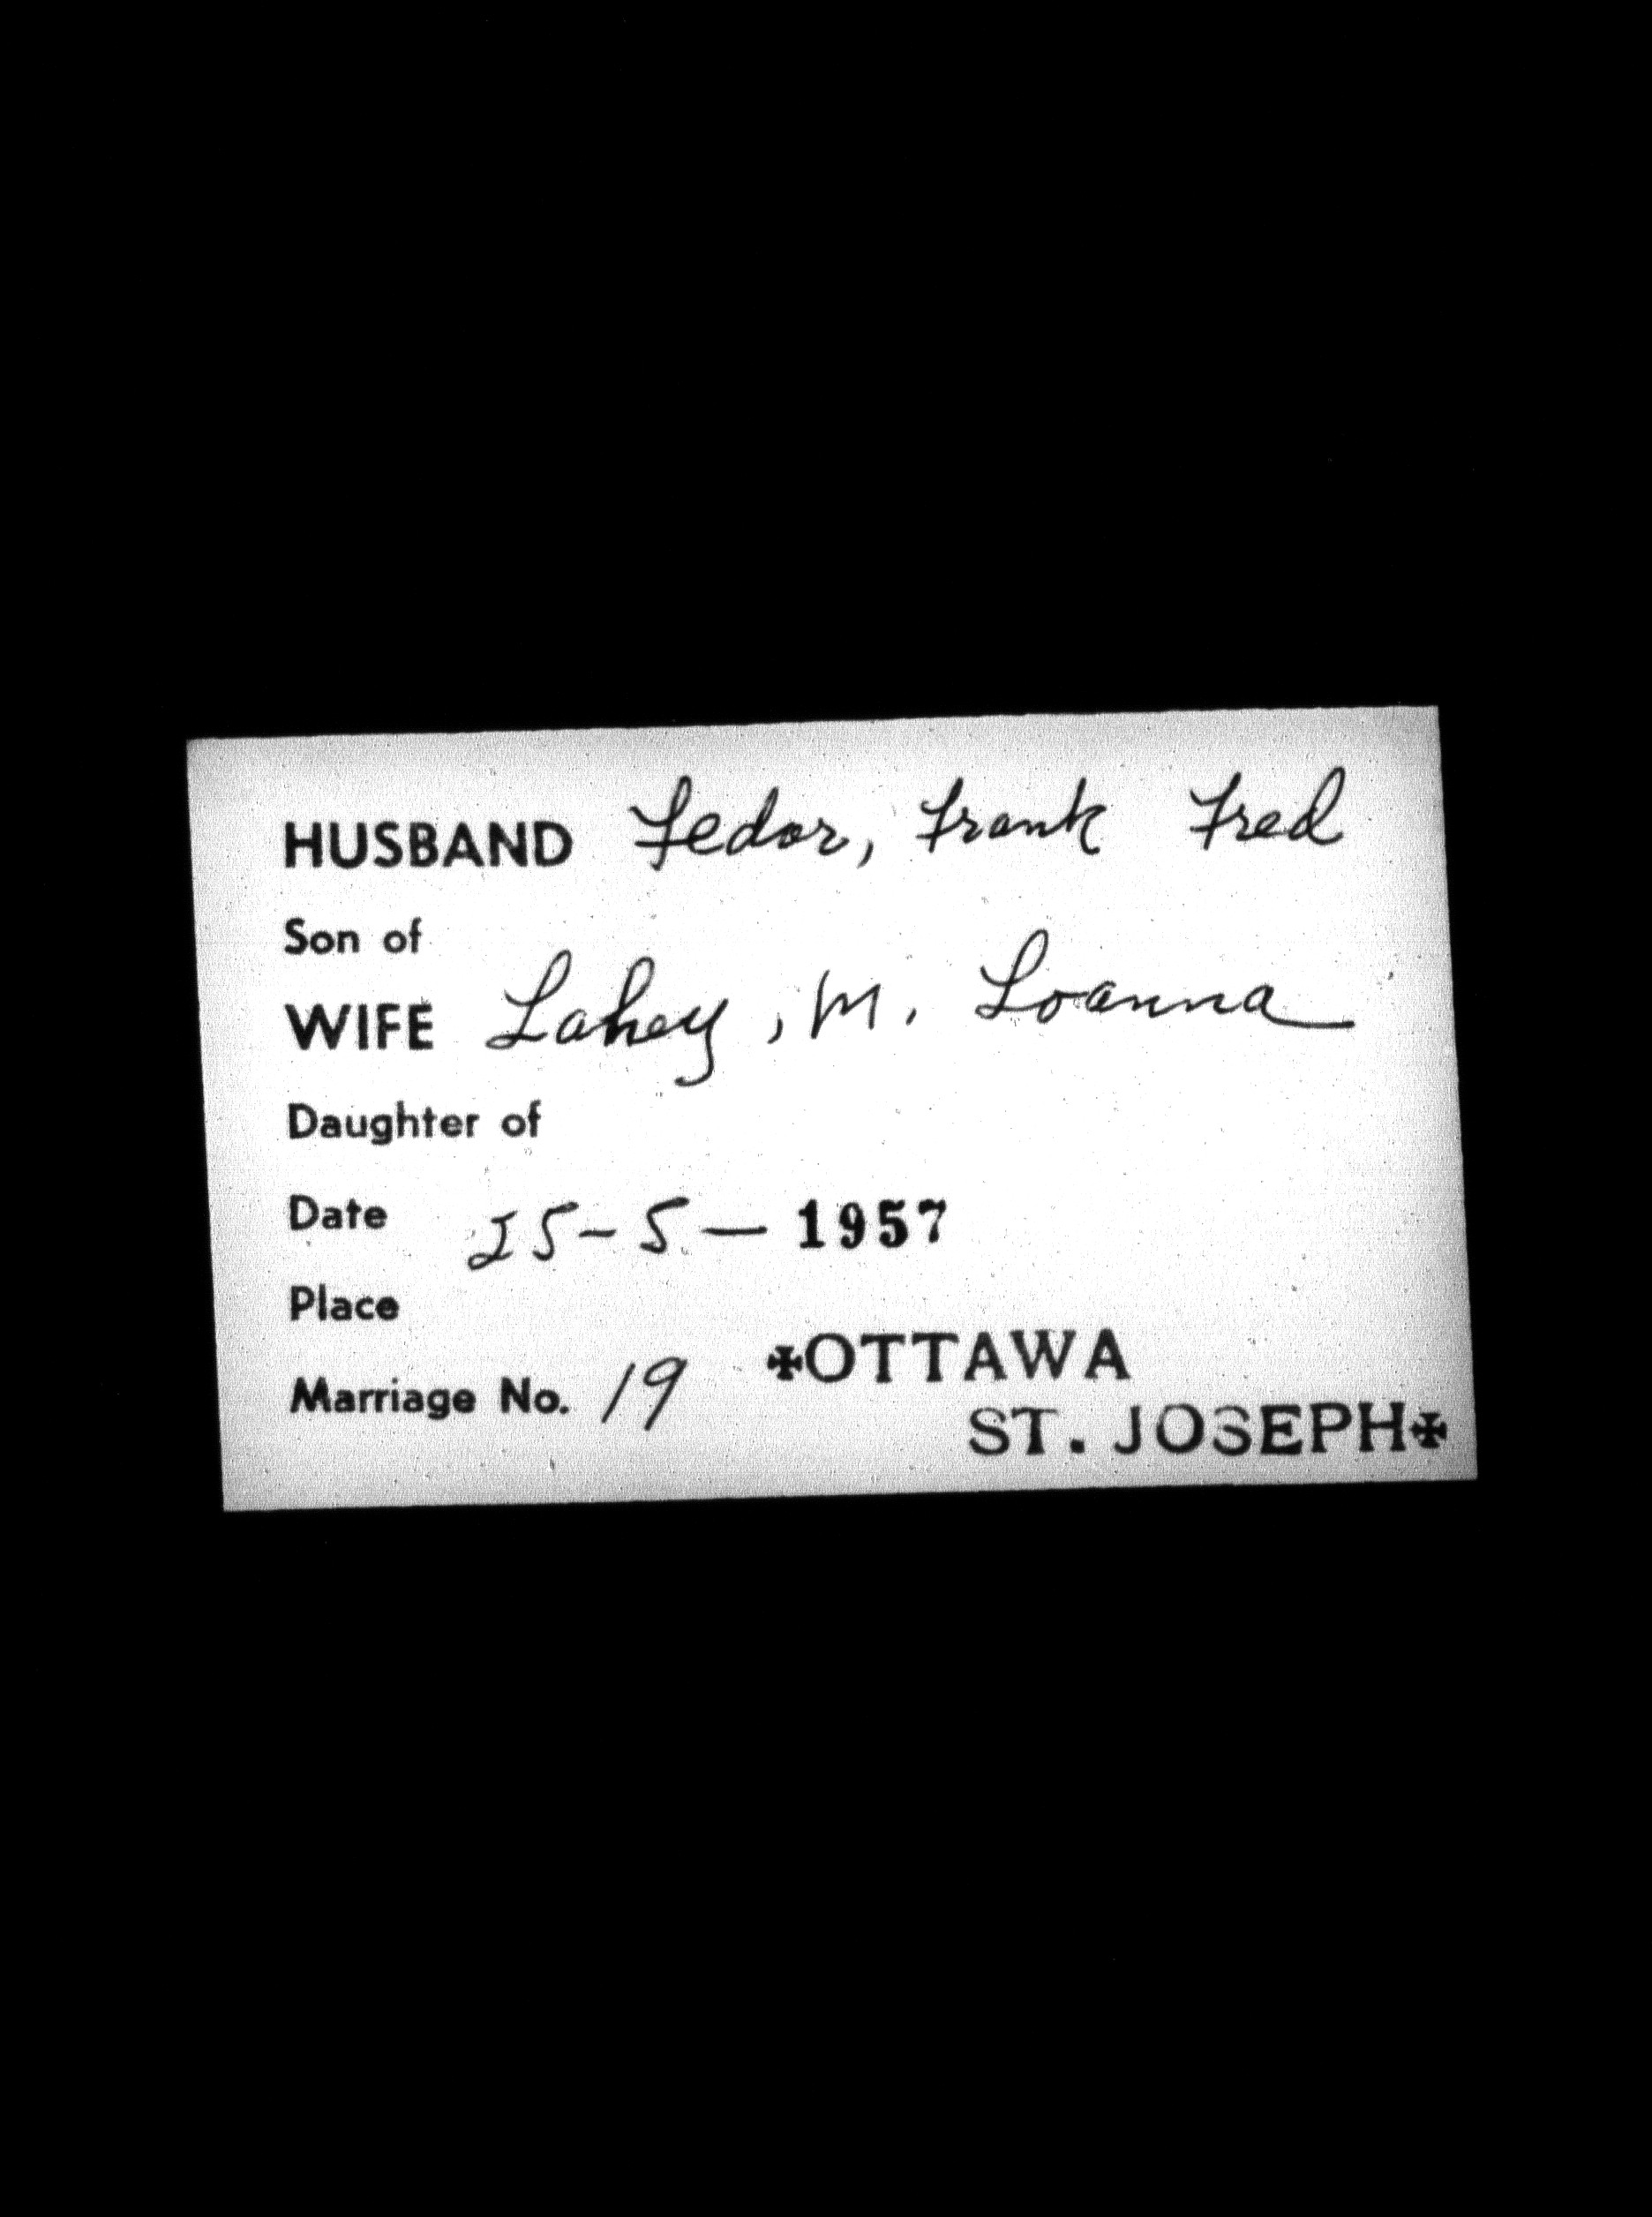 HUSBAND Fedor, Frank Fred
Son of
WIFE Lahey, M. Loanna
Daughter of
Date 25-5-1957
Place
✠OTTAWA
Marriage No. 19
ST. JOSEPH✠